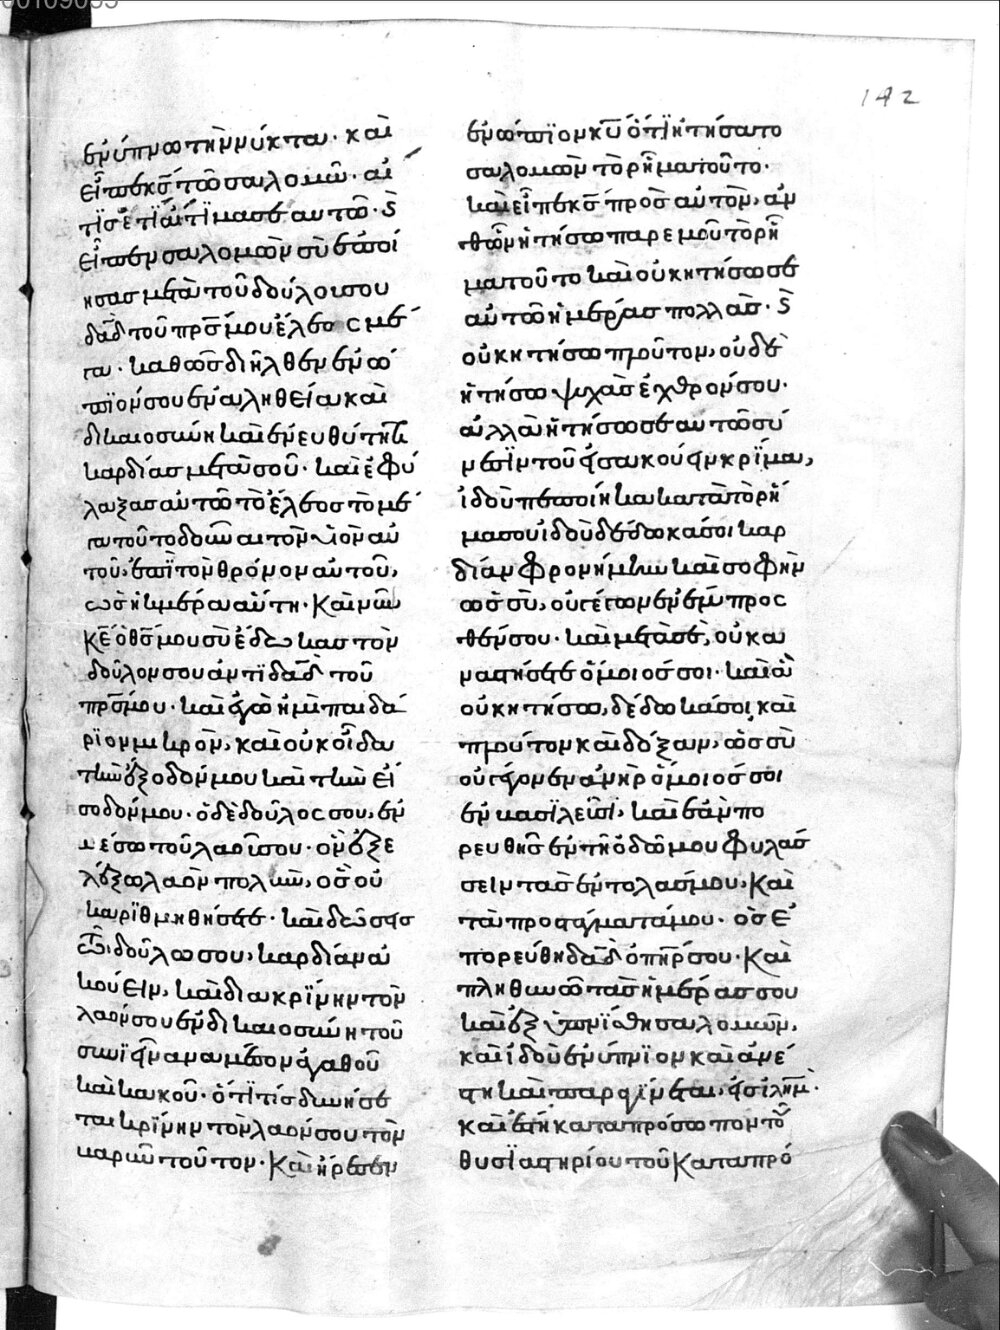 00109055
142
ἐν ὕπνω τὴν νύκτα· καὶ
εἶπε κ̅ς̅ τῶ σαλομῶ̅· αἴ
τησέ τι αἴτημα σεαυτῶ· ϛ̀
εἶπεν σαλομὼν σὺ ἐποί
ησας μετὰ τοῦ δούλου σου
δα̅δ̅ τοῦ πρ̅ς̅ μου ἔλεος μέ
γα· καθὼς διῆλθεν ἐνώ
πϊόν σου ἐν ἀληθεία καὶ
δικαιοσύνη καὶ ἐν ευθύτητι
καρδίας μετὰ σοῦ· καὶ ἐφύ
λαξας αὐτῶ τὸ ἔλεος τὸ μέ
γα τοῦτο δοῦναι τὸν υἱὸν αὐ
τοῦ, ἐπῒ τὸν θρόνον αὐτοῦ,
ὡς ἡ ἡμέρα αὕτη· Καὶ νῦν
κ̅ε̅ ὁ θ̅ς̅ μου σὺ ἔδωκας τὸν
δοῦλον σου ἀντῒ δα̅δ̅ τοῦ
πρ̅ς̅ μου· καὶ ἐγώ εἰμι παιδά
ρϊον μικρὸν, καὶ οὐκ οἶδα
τὴν ἔξοδόν μου καὶ τὴν εἴ
σοδόν μου· ὁ δὲ δοῦλος σου, ἐν
μέσω τοῦ λαοῦ σου· ὃν ἐξε
λέξω λαὸν πολὺν, ὃς οὐ
κ αρϊθμηθήσεται· καὶ δώσεις
τῶ δούλω σου, καρδίαν ἀ
κούειν, καὶ διακρίνειν τὸν
λαόν σου ἐν δικαιοσύνη τοῦ
συνϊεῖν ἀναμέσον ἀγαθοῦ
καὶ κακοῦ· ὅτι τίς δυνήσε
ται κρίνειν τὸν λαόν σου τὸν
βαρὺν τοῦτον· Καὶ ἤρεσεν
ἐνώπϊον κ̅υ̅ ὅτϊ ἠτήσατο
σαλομὼν τὸ ρῆμα τοῦτο·
καὶ εἶπε κ̅ς̅ πρὸς αὐτὸν, ἀν
θῶν ἠτήσω παρεμοῦ τὸ ρῆ
μα τοῦτο καὶ οὐκ ητήσω σε
αὐτῶ ἡμέρας πολλὰς· ϛ̀
οὐκ ητήσω πλοῦτον, οὐδὲ
ἠτήσω ψυχὰς ἐχθρόν σου·
ἀλλὰ ἠτήσω σεαυτῶ σύ
νεσϊν τοῦ εἰσακούειν κρίμα,
ἰδοὺ πεποίηκα κατὰ τὸ ρῆ
μα σου ἰδοὺ δέδωκά σοι καρ
δίαν φρονίμην καὶ σοφὴν
ὡς σὺ, οὐ γέγωνεν ἔμπροσ
θέν σου· καὶ μετὰ σὲ, οὐκ α
ναστήσεται ὅμοιός σοι· καὶ ἃ
οὐκ ητήσω, δέδωκά σοι, καὶ
πλοῦτον καὶ δόξαν, ὡς σὺ
οὐ γέγονεν ἀνὴρ ὅμοιός σοι
ἐν βασϊλεῦσϊ, καὶ ἐὰν πο
ρευθῆς ἐν τῆ ὁδῶ μου φυλάσ
σειν τὰς ἐντολάς μου, Καὶ
τὰ προστάγματά μου· ὡς ἐ
πορεύθη δα̅δ̅ ὁ πη̅ρ̅ σου· Καὶ
πληθυνῶ τὰς ἡμέρας σου
καὶ ἐξυπνΐσθη σαλομὼν,
καὶ ἰδοὺ ἐνύπνϊον καὶ ἀνέ
στη καὶ παραγΐνεται, εἰς ἰλη̅μ̅·
καὶ ἔστη κατα πρόσωπον τοῦ
θυσϊαστηρίου τοῦ κατα πρό